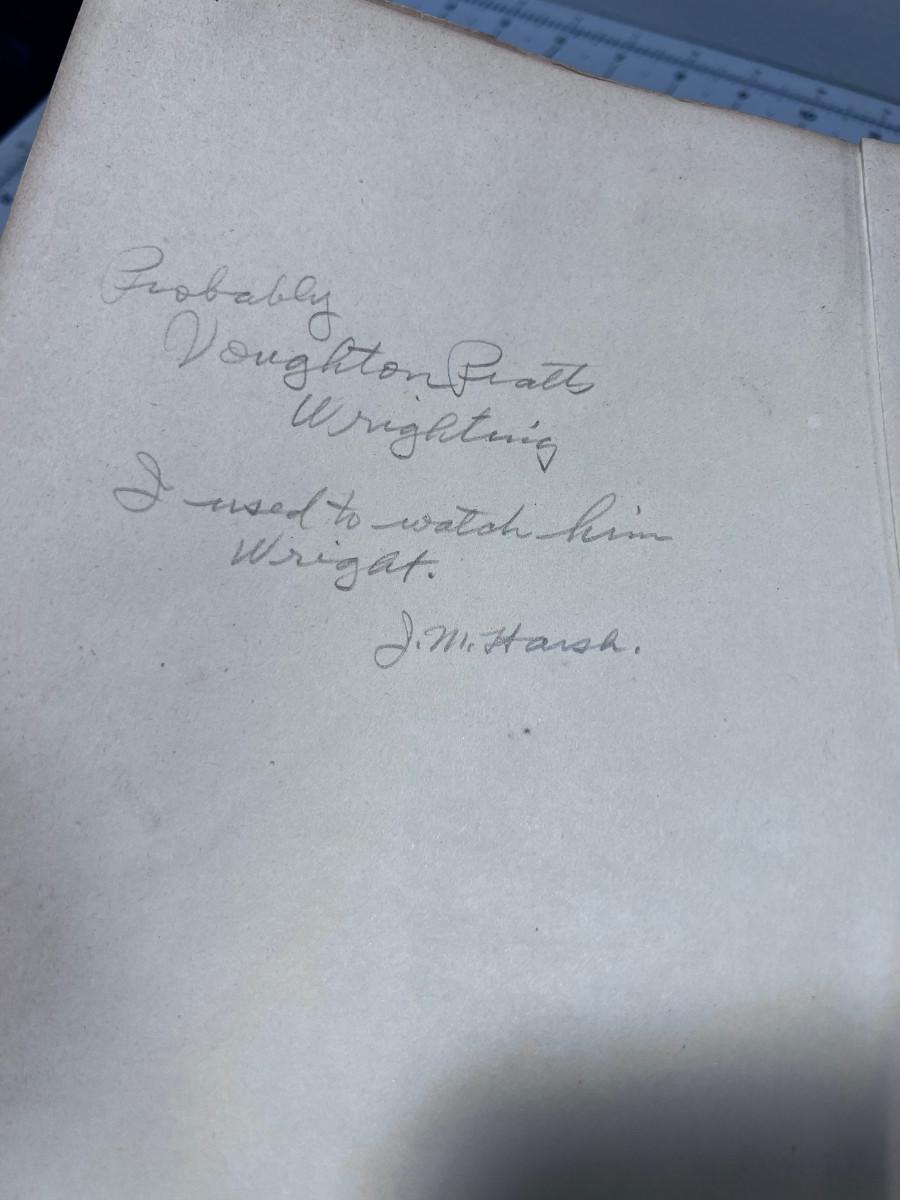 Probably
Voughton Pratts
Wrighting
I used to watch him
Wright.
J. M. Harsh.